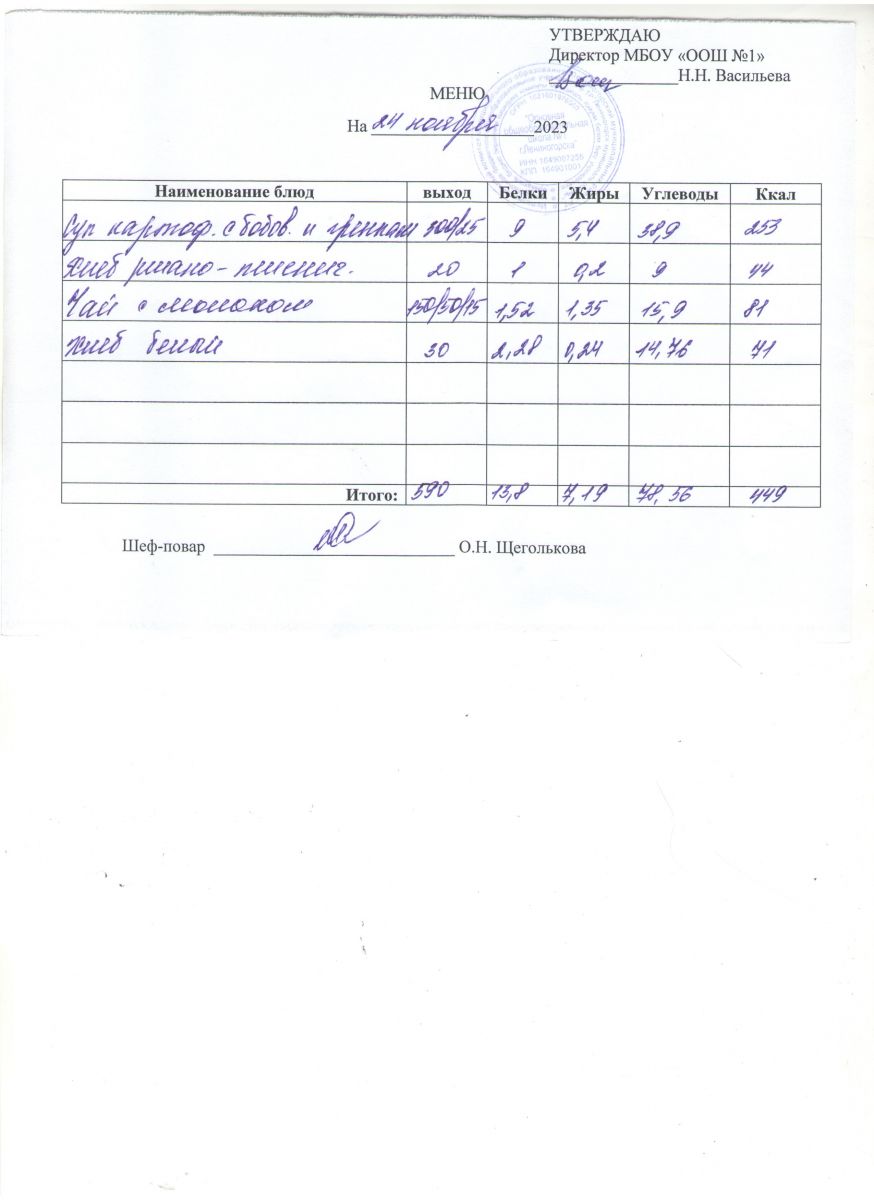 УТВЕРЖДАЮ
Директор МБОУ «ООШ №1»
Н.Н. Васильева
МЕНЮ
На 24 ноября 2023
"Основная
общеобразовательная
школа №1"
г.Лениногорска"
ИНН 1649007256
КПП 164901001
Наименование блюд выход Белки Жиры Углеводы Ккал
Суп картоф. с бобов. и гренками 300/25 9 5,4 38,9 253
Хлеб ржано-пшенич. 20 1 0,2 9 44
Чай с молоком 150/50/15 1,52 1,35 15,9 81
Хлеб белый 30 2,28 0,24 14,76 71
Итого: 590 13,8 7,19 78,56 449
Шеф-повар О.Н. Щеголькова